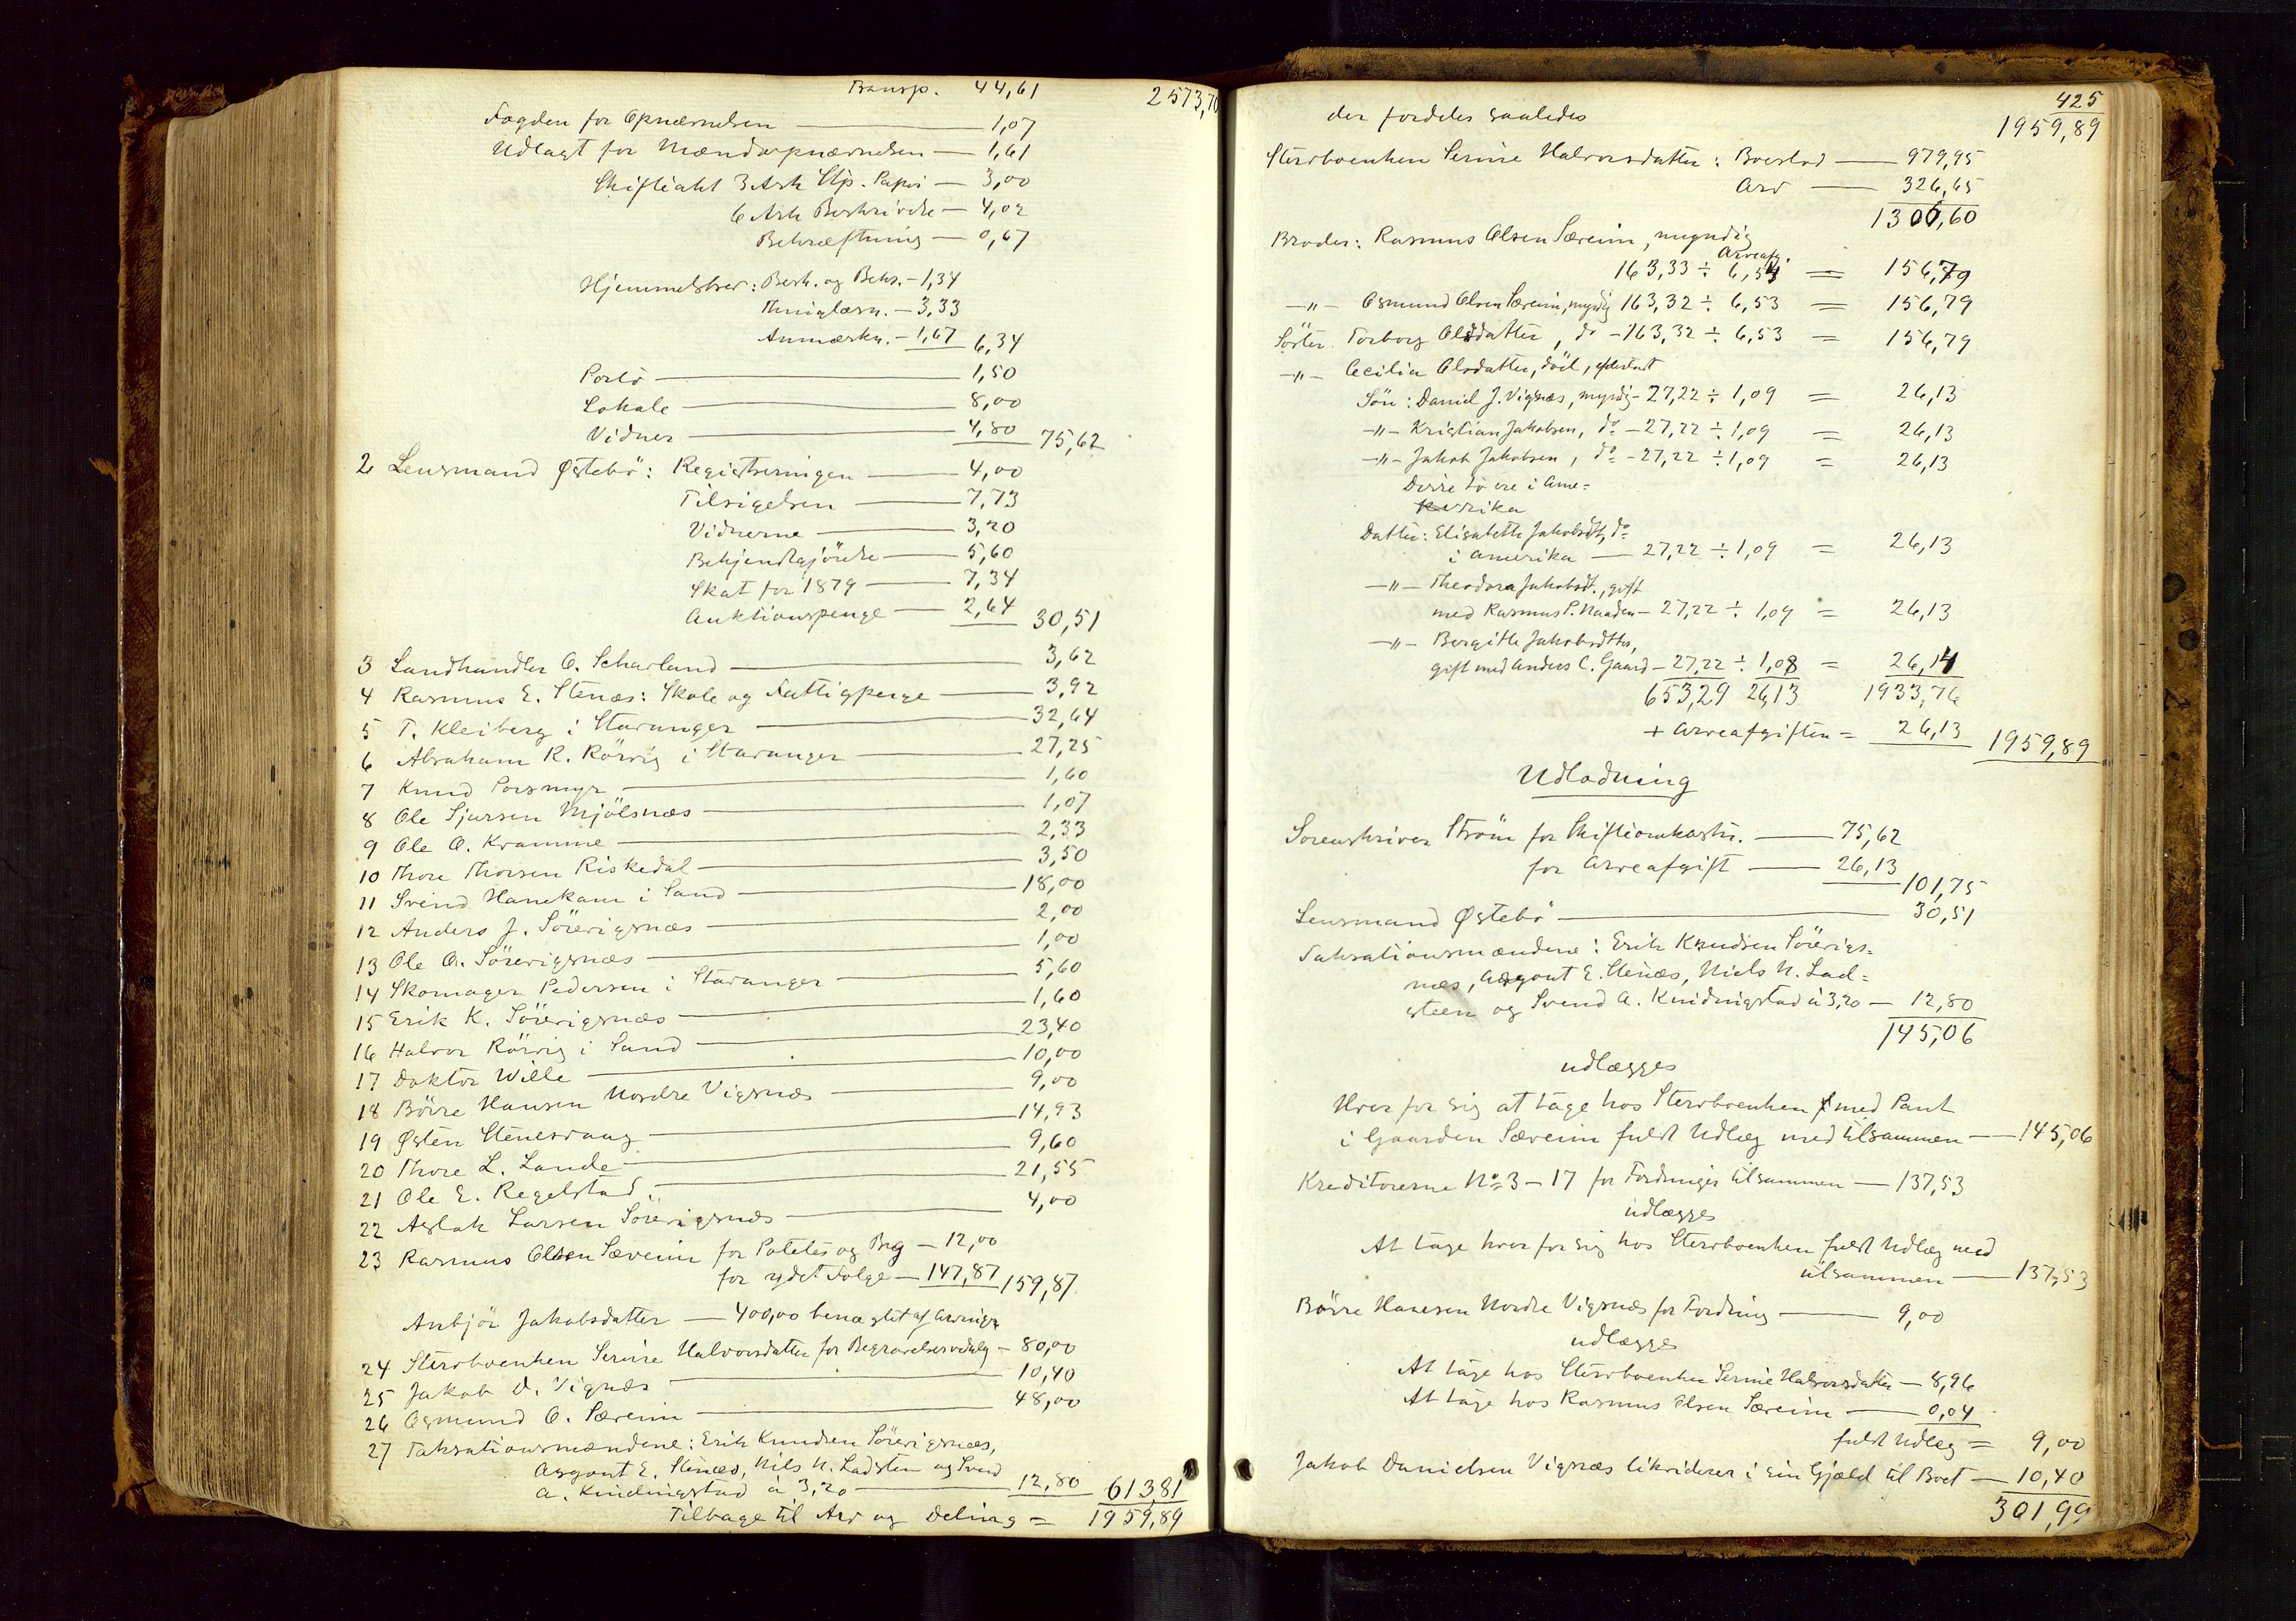 Transp. 44,61 2573,70
Fogden for Opnævnelsen — 1,07
Udlagt for Mændsopnævnelsen — 1,61
Skifteakt 3 Ark Stp. Papir — 3,00
6 Ark Beskrivelse — 4,02
Bekræftning — 0,67
Hjemmelsbrev: Besk. og Bekr. — 1,34
Thinglæsn. — 3,33
Anmærkn. — 1,67 6,34
Porto — 1,50
Lokale — 8,00
Vidner — 4,80 75,62
2 Lensmand Østebö: Registreringen — 4,00
Tilsigelsen — 7,73
Vidnerne — 3,20
Bekjendtgjörelse — 5,60
Skat for 1879 — 7,34
Auktionspenge — 2,64 30,51
3 Landhandler O. Scharland — 3,62
4 Rasmus E. Stenæs: Skole og Fattigpenge — 3,92
5 T. Kleiberg i Stavanger — 32,64
6 Abraham R. Rörvig i Stavanger — 27,25
7 Knud Porsmyr — 1,60
8 Ole Sjursen Mjölsnæs — 1,07
9 Ole O. Kramme — 2,33
10 Thore Thorsen Riskedal — 3,50
11 Svend Hanekam i Sand — 18,00
12 Anders J. Sörevigsnæs — 2,00
13 Ole O. Sörevigsnæs — 1,00
14 Skomager Pedersen i Stavanger — 5,60
15 Erik K. Sörevigsnæs — 1,60
16 Halvor Rörvig i Sand — 23,40
17 Doktor Wille — 10,00
18 Börre Hansen Nordre Vigsnæs — 9,00
19 Østen Stenesvaag — 14,93
20 Thore L. Lande — 9,60
21 Ole E. Regelstad — 21,55
22 Aslak Larsen Sörevigsnæs — 4,00
23 Rasmus Olsen Særeim for Poteter og Byg — 12,00
for ydet Følge — 147,87 159,87
Anbjör Jakobsdatter — 400,00 benægtet af Arvinger
24 Stervboenken Serine Halvorsdatter for Begravelsesudlæg — 80,00
25 Jakob D. Vignæs — 10,40
26 Osmund O. Særeim — 48,00
27 Taksationsmændene: Erik Knudsen Sörevigsnæs,
Asgout E. Stenæs, Nils N. Ladsten og Svend
A. Kindingstad à 3,20 — 12,80 613,81
Tilbage til Arv og Deling = 1959,89
425
der fordeles saaledes 1959,89
Stervboenken Serine Halvorsdatter: Boeslod — 979,95
Arv — 326,65
1306,60
Broder: Rasmus Olsen Særeim, myndig
Arveafg.
163,33 ÷ 6,54 = 156,79
—"— Osmund Olsen Særeim, myndig 163,32 ÷ 6,53 = 156,79
Söster Torborg Olsdatter, do — 163,32 ÷ 6,53 = 156,79
—"— Cecilia Olsdatter, död, efterladt
Sön: Daniel J. Vignæs, myndig — 27,22 ÷ 1,09 = 26,13
—"— Kristian Jakobsen, do — 27,22 ÷ 1,09 = 26,13
—"— Jakob Jakobsen, do — 27,22 ÷ 1,09 = 26,13
Disse to ere i Ame=
rika
Datter: Elisabeth Jakobsdt, do
i Amerika — 27,22 ÷ 1,09 = 26,13
—"— Theodora Jakobsdt., gift
med Rasmus P. Naaden — 27,22 ÷ 1,09 = 26,13
—"— Bergithe Jakobsdtter,
gift med Anders C. Gaard — 27,22 ÷ 1,08 = 26,14
653,29 26,13 1933,76
+ Arveafgiften = 26,13 1959,89
Udlodning
Sorenskriver Ström for Skifteomkostn. — 75,62
for Arveafgift — 26,13 101,75
Lensmand Østebö — 30,51
Taksationsmændene: Erik Knudsen Sörevigs=
næs, Asgout E. Stenæs, Niels N. Lad=
steen og Svend A. Kindingstad à 3,20 — 12,80
145,06
udlægges
Hver for sig at tage hos Stervboenken med Pant
i Gaarden Særeim fuldt Udlæg med tilsammen — 145,06
Kreditorerne No 3 — 17 for Fordringer tilsammen — 137,53
udlægges
At tage hver for sig hos Stervboenken fuldt Udlæg med
tilsammen — 137,53
Börre Hansen Nordre Vigsnæs for Fordring — 9,00
udlægges
At tage hos Stervboenken Serine Halvorsdatter — 8,96
At tage hos Rasmus Olsen Særeim — 0,04
fuldt Udlæg = 9,00
Jakob Danielsen Vignæs likviderer i sin Gjæld til Boet — 10,40
301,99